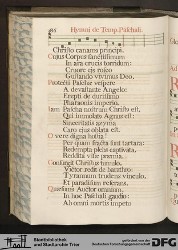 Hymni de Temp. Paschali.
Christo canamus principi.
Cujus Corpus sanctissimum
In ara crucis torridum:
Cruore ejus roseo
Gustando vivimus Deo.
Protecti Paschæ vespere
A devastante Angelo:
Erepti de durissimo
Pharaonis imperio.
Jam Pascha nostrum Christus est,
Qui immolatus Agnus est:
Sinceritatis azyma
Caro ejus oblata est.
O vere digna hostia!
Per quam fracta sunt tartara:
Redempta plebs captivata,
Reddita vitæ præmia.
Consurgit Christus tumulo,
Victor redit de barathro:
Tyrannum trudens vinculo,
Et paradisum reserans.
Quæsumus Auctor omnium,
In hoc Paschali gaudio:
Ab omni mortis impetu
Stiftsbibliothek
und Stadtarchiv Trier
gefördert von der
Deutschen Forschungsgemeinschaft
DFG